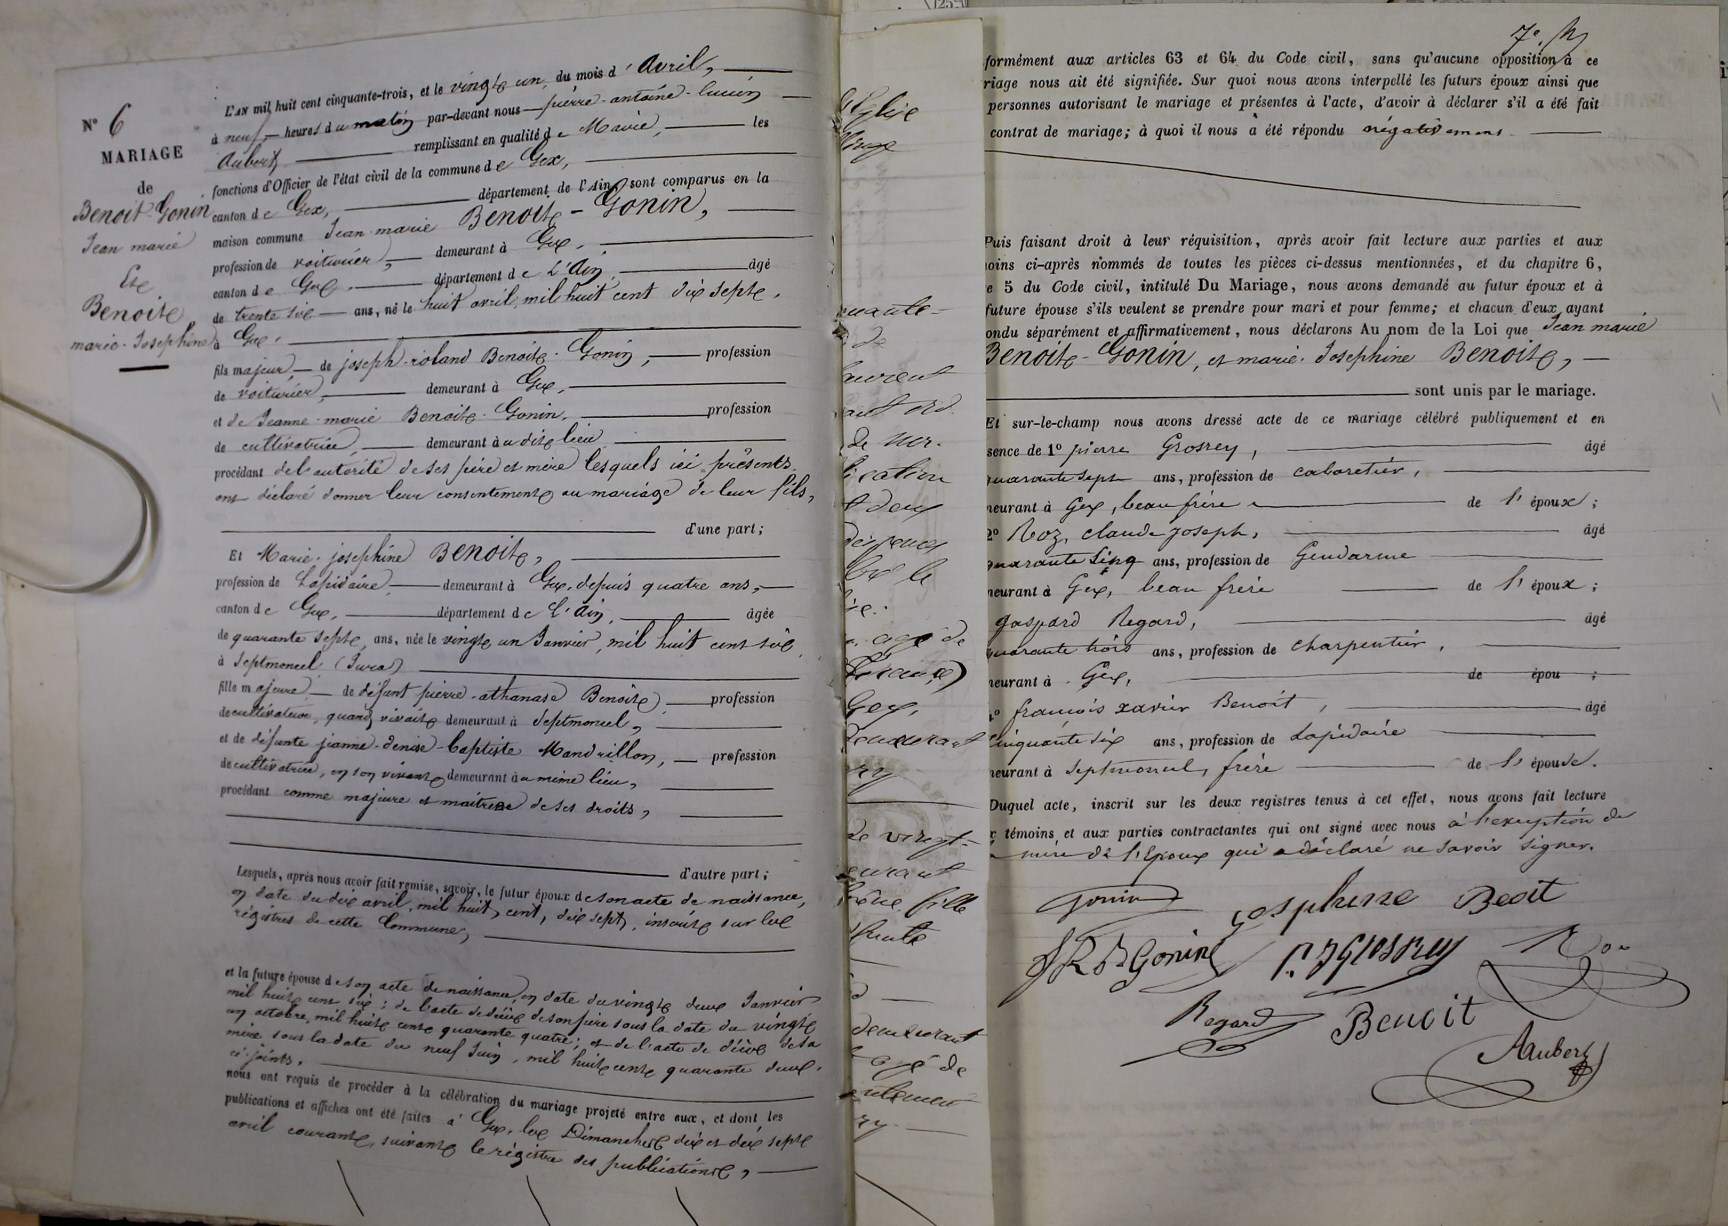 N° 6
MARIAGE
de
Benoit-Gonin
Jean marie
Et
Benoit
marie-Josephine
L'AN mil huit cent cinquante-trois, et le vingt un, du mois d'Avril,
à neuf heures du matin par-devant nous pierre-antoine-lucien
Aubert, remplissant en qualité de Maire, les
fonctions d'Officier de l'état civil de la commune de Gex,
canton de Gex, département de l'Ain, sont comparus en la
maison commune Jean marie Benoit-Gonin,
profession de voiturier, demeurant à Gex,
canton de Gex, département de L'Ain, âgé
de trente six ans, né le huit avril, mil huit cent dix sept,
à Gex,
fils majeur de joseph-roland Benoit-Gonin, profession
de voiturier, demeurant à Gex,
et de Jeanne-marie Benoit-Gonin, profession
de cultivatrice, demeurant au dit lieu
procédant de l'autorité de ses père et mère lesquels ici présents
ont déclaré donner leur consentement au mariage de leur fils,
d'une part;
Et Marie-josephine Benoit,
profession de Lapidaire, demeurant à Gex, depuis quatre ans,
canton de Gex, département de L'Ain, âgée
de quarante sept, ans, née le vingt un Janvier, mil huit cent six,
à Septmoncel (Jura)
fille majeure de défunt pierre-athanase Benoit, profession
de cultivateur, quand vivait demeurant à Septmoncel,
et de défunte jeanne-denise-baptiste Mandrillon, profession
de cultivatrice, en son vivant demeurant au même lieu,
procédant comme majeure et maitresse de ses droits,
d'autre part;
Lesquels, après nous avoir fait remise, savoir, le futur époux de son acte de naissance,
en date du dix avril, mil huit, cent, dix sept, inscrit sur les
régistres de cette Commune,
et la future épouse de son acte de naissance, en date du vingt deux Janvier
mil huit cent six; de l'acte de décès de son père sous la date du vingt
un octobre, mil huit cent quarante quatre; et de l'acte de décès de sa
mère sous la date du neuf Juin, mil huit cent quarante deux,
ci-joints,
nous ont requis de procéder à la célébration du mariage projeté entre eux, et dont les
publications et affiches ont été faites à Gex, les Dimanches dix et dix sept
avril courant, suivant le régistre des publications,
formément aux articles 63 et 64 du Code civil, sans qu'aucune opposition à ce
riage nous ait été signifiée. Sur quoi nous avons interpellé les futurs époux ainsi que
personnes autorisant le mariage et présentes à l'acte, d'avoir à déclarer s'il a été fait
contrat de mariage; à quoi il nous a été répondu négativement
Puis faisant droit à leur réquisition, après avoir fait lecture aux parties et aux
oins ci-après nommés de toutes les pièces ci-dessus mentionnées, et du chapitre 6,
e 5 du Code civil, intitulé Du Mariage, nous avons demandé au futur époux et à
future épouse s'ils veulent se prendre pour mari et pour femme; et chacun d'eux ayant
ondu séparément et affirmativement, nous déclarons Au nom de la Loi que Jean marie
Benoit-Gonin, et marie-Josephine Benoit,
sont unis par le mariage.
Et sur-le-champ nous avons dressé acte de ce mariage célébré publiquement et en
sence de 1° pierre Grosrey, âgé
quarante sept ans, profession de cabaretier,
neurant à Gex, beau frère de l'époux;
2° Roz, claude joseph, âgé
quarante cinq ans, profession de Gendarme
neurant à Gex, beau frère de l'époux;
gaspard Regard, âgé
quarante trois ans, profession de charpentier,
neurant à Gex, de épou ;
4° françois xavier Benoit, âgé
cinquante six ans, profession de Lapidaire
neurant à Septmoncel, frère de l'épouse.
Duquel acte, inscrit sur les deux registres tenus à cet effet, nous avons fait lecture
x témoins et aux parties contractantes qui ont signé avec nous à l'exception de
mère de l'époux qui a déclaré ne savoir signer.
Gonin
Josphine Beoit
J R B Gonin
P. J Grosrey
Roz
Regard
Benoit
Aubert